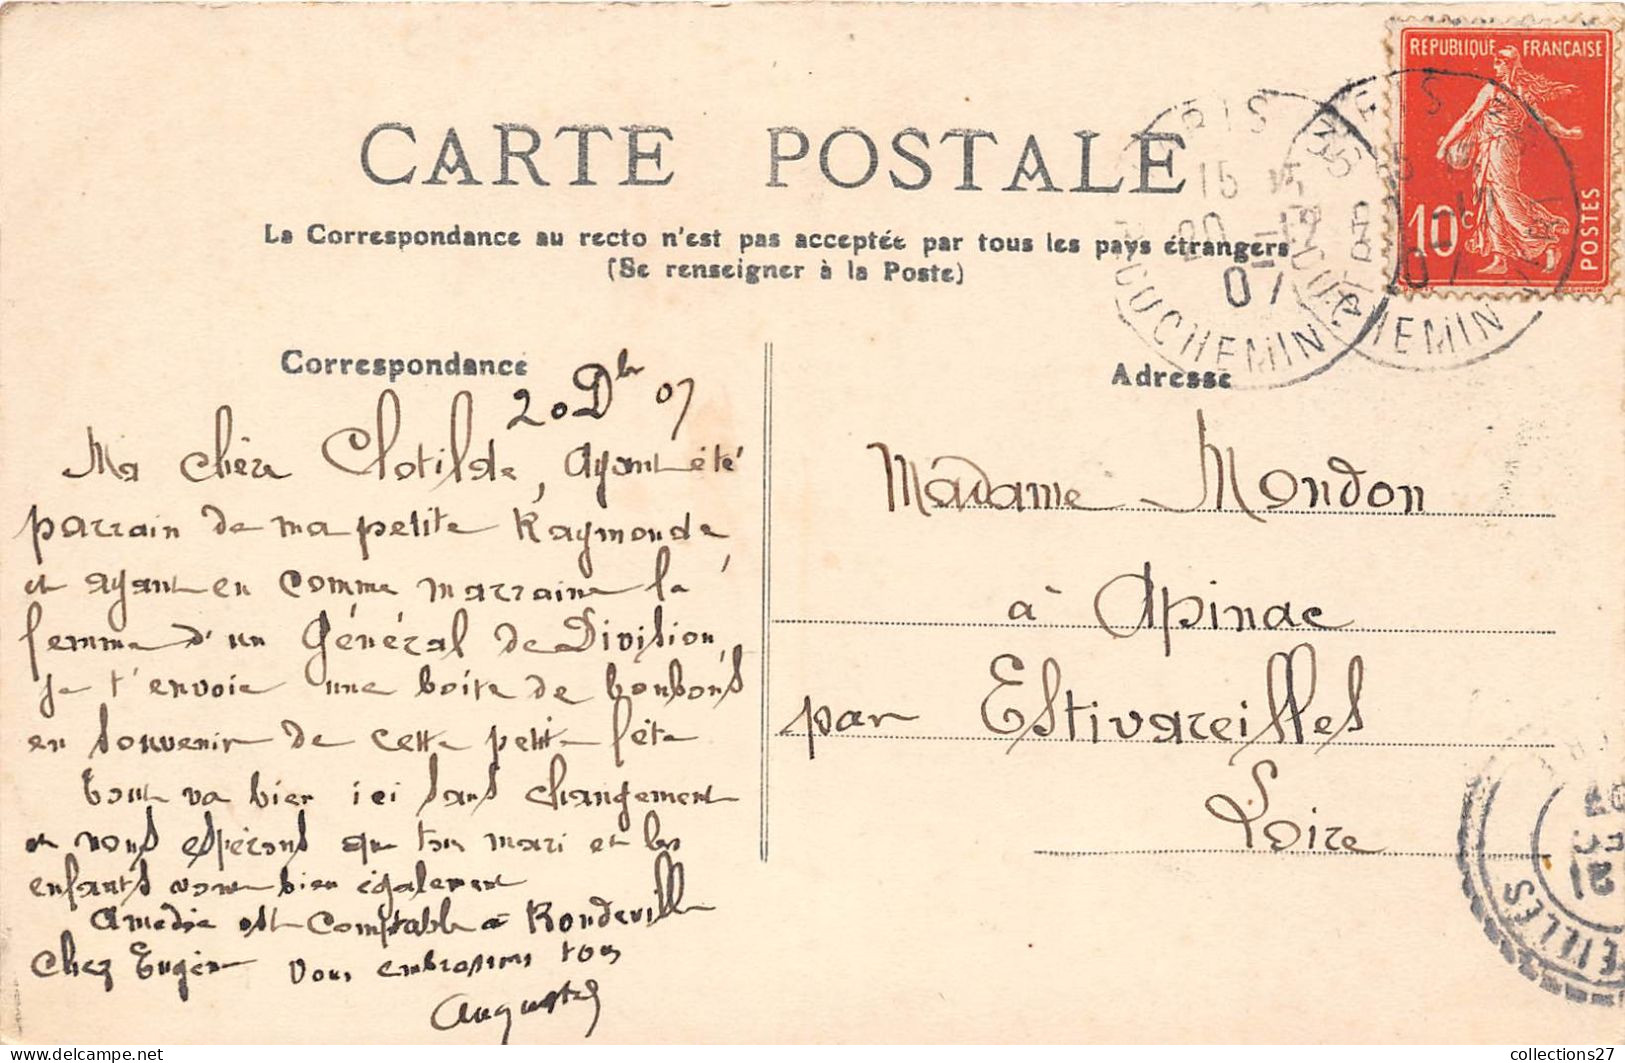 CARTE POSTALE
La Correspondance au recto n'est pas acceptée par tous les pays étrangers
(Se renseigner à la Poste)
REPUBLIQUE FRANÇAISE
10c POSTES
15
20 -12
07
CUCHEMIN
Correspondance
20 Dbr 07
Ma chère Clotilde, ayant été
parrain de ma petite Raymonde,
et ayant eu comme marraine la
femme d'un Général de Division,
je t'envoie une boite de bonbons
en souvenir de cette petite fête
Tout va bien ici sans changement
et nous espérons que ton mari et les
enfants vont bien également
Amedée est Comptable à Rondeville
Chez Eugène Vous embrassons tous
Auguste
Adresse
Madame Mondon
à Apinac
par Estivareilles
Loire
EILLES
collections27